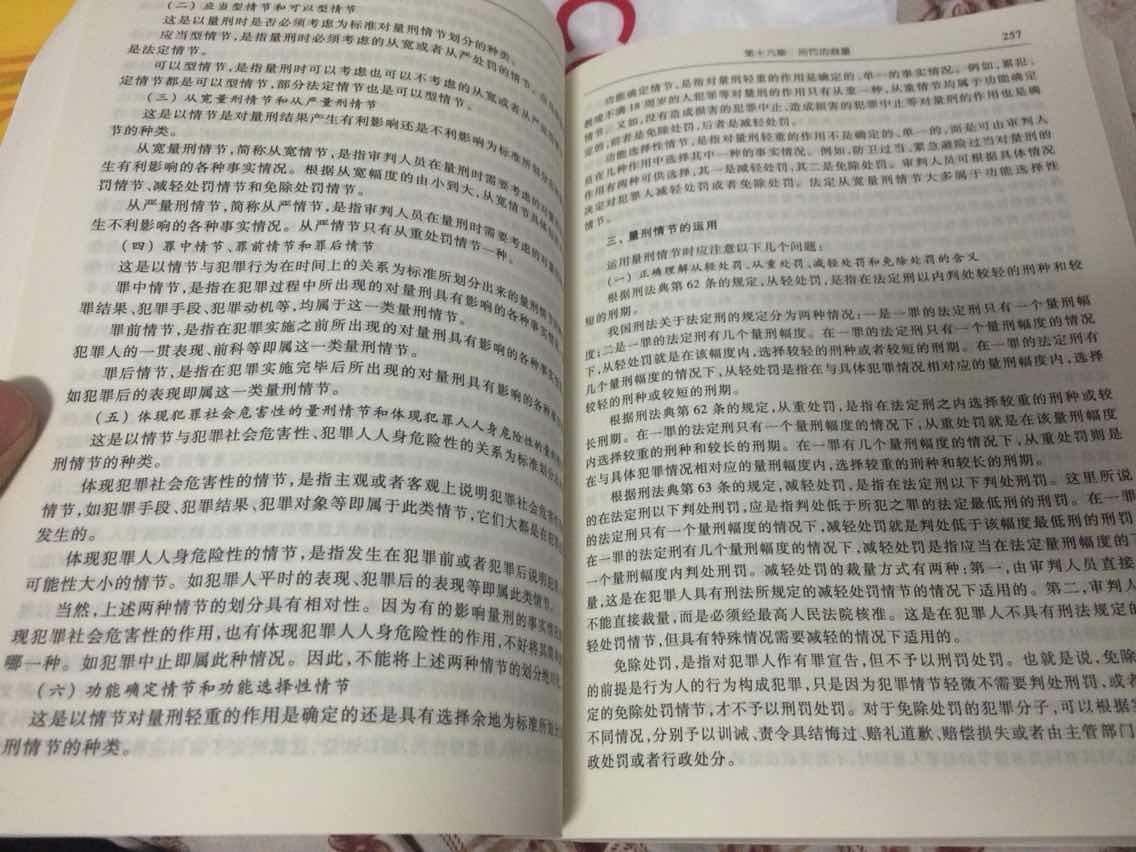 (二)应当型情节和可以型情节
这是以量刑时是否必须考虑为标准对量刑情节划分的种类。
应当型情节,是指量刑时必须考虑的从宽或者从严处罚的情节。
是法定情节。
可以型情节,是指量刑时可以考虑也可以不考虑的从宽或者从严处
定情节都是可以型情节,部分法定情节也是可以型情节。
(三)从宽量刑情节和从严量刑情节
这是以情节是对量刑结果产生有利影响还是不利影响为标准所划分
节的种类。
从宽量刑情节,简称从宽情节,是指审判人员在量刑时需要考虑的对
生有利影响的各种事实情况。根据从宽幅度的由小到大,从宽情节具体
罚情节、减轻处罚情节和免除处罚情节。
从严量刑情节,简称从严情节,是指审判人员在量刑时需要考虑的对
生不利影响的各种事实情况。从严情节只有从重处罚情节一种。
(四)罪中情节、罪前情节和罪后情节
这是以情节与犯罪行为在时间上的关系为标准所划分出来的量刑情节
罪中情节,是指在犯罪过程中所出现的对量刑具有影响的各种事实情
罪结果、犯罪手段、犯罪动机等,均属于这一类量刑情节。
罪前情节,是指在犯罪实施之前所出现的对量刑具有影响的各种事实
犯罪人的一贯表现、前科等即属这一类量刑情节。
罪后情节,是指在犯罪实施完毕后所出现的对量刑具有影响的各种事
如犯罪后的表现即属这一类量刑情节。
(五)体现犯罪社会危害性的量刑情节和体现犯罪人人身危险性的量刑
这是以情节与犯罪社会危害性、犯罪人人身危险性的关系为标准划分
刑情节的种类。
体现犯罪社会危害性的情节,是指主观或者客观上说明犯罪社会危害
情节,如犯罪手段、犯罪结果、犯罪对象等即属于此类情节,它们大都是在犯罪
发生的。
体现犯罪人人身危险性的情节,是指发生在犯罪前或者犯罪后说明犯罪
可能性大小的情节。如犯罪人平时的表现、犯罪后的表现等即属此类情节。
当然,上述两种情节的划分具有相对性。因为有的影响量刑的事实情况
现犯罪社会危害性的作用,也有体现犯罪人人身危险性的作用,不好将其简单
哪一种。如犯罪中止即属此种情况。因此,不能将上述两种情节的划分绝对化。
(六)功能确定情节和功能选择性情节
这是以情节对量刑轻重的作用是确定的还是具有选择余地为标准所划
刑情节的种类。
第十六章 刑罚的裁量
257
功能确定情节,是指对量刑轻重的作用是确定的、单一的事实情况。例如,累犯、
教唆不满 18 周岁的人犯罪等对量刑的作用只有从重一种,从重情节均属于功能确定
情节。又如,没有造成损害的犯罪中止、造成损害的犯罪中止等对量刑的作用也是确
定的,前者是免除处罚,后者是减轻处罚。
功能选择性情节,是指对量刑轻重的作用不是确定的、单一的,而是可由审判人
员在几种作用中选择其中一种的事实情况。例如,防卫过当、紧急避险过当对量刑的
作用有两种可供选择,其一是减轻处罚,其二是免除处罚。审判人员可根据具体情况
决定对犯罪人减轻处罚或者免除处罚。法定从宽量刑情节大多属于功能选择性
情节。
三、量刑情节的运用
运用量刑情节时应注意以下几个问题:
(一)正确理解从轻处罚、从重处罚、减轻处罚和免除处罚的含义
根据刑法典第 62 条的规定,从轻处罚,是指在法定刑以内判处较轻的刑种和较
短的刑期。
我国刑法关于法定刑的规定分为两种情况:一是一罪的法定刑只有一个量刑幅
度;二是一罪的法定刑有几个量刑幅度。在一罪的法定刑只有一个量刑幅度的情况
下,从轻处罚就是在该幅度内,选择较轻的刑种或者较短的刑期。在一罪的法定刑有
几个量刑幅度的情况下,从轻处罚是指在与具体犯罪情况相对应的量刑幅度内,选择
较轻的刑种或较短的刑期。
根据刑法典第 62 条的规定,从重处罚,是指在法定刑之内选择较重的刑种或较
长刑期。在一罪的法定刑只有一个量刑幅度的情况下,从重处罚就是在该量刑幅度
内选择较重的刑种和较长的刑期。在一罪有几个量刑幅度的情况下,从重处罚则是
在与具体犯罪情况相对应的量刑幅度内,选择较重的刑种和较长的刑期。
根据刑法典第 63 条的规定,减轻处罚,是指在法定刑以下判处刑罚。这里所说
的在法定刑以下判处刑罚,应是指判处低于所犯之罪的法定最低刑的刑罚。在一罪
的法定刑只有一个量刑幅度的情况下,减轻处罚就是判处低于该幅度最低刑的刑罚
在一罪的法定刑有几个量刑幅度的情况下,减轻处罚是指应当在法定量刑幅度的下
一个量刑幅度内判处刑罚。减轻处罚的裁量方式有两种:第一,由审判人员直接
量,这是在犯罪人具有刑法所规定的减轻处罚情节的情况下适用的。第二,审判人
不能直接裁量,而是必须经最高人民法院核准。这是在犯罪人不具有刑法规定的
轻处罚情节,但具有特殊情况需要减轻的情况下适用的。
免除处罚,是指对犯罪人作有罪宣告,但不予以刑罚处罚。也就是说,免除
的前提是行为人的行为构成犯罪,只是因为犯罪情节轻微不需要判处刑罚,或者
定的免除处罚情节,才不予以刑罚处罚。对于免除处罚的犯罪分子,可以根据案
不同情况,分别予以训诫、责令具结悔过、赔礼道歉、赔偿损失或者由主管部门
政处罚或者行政处分。